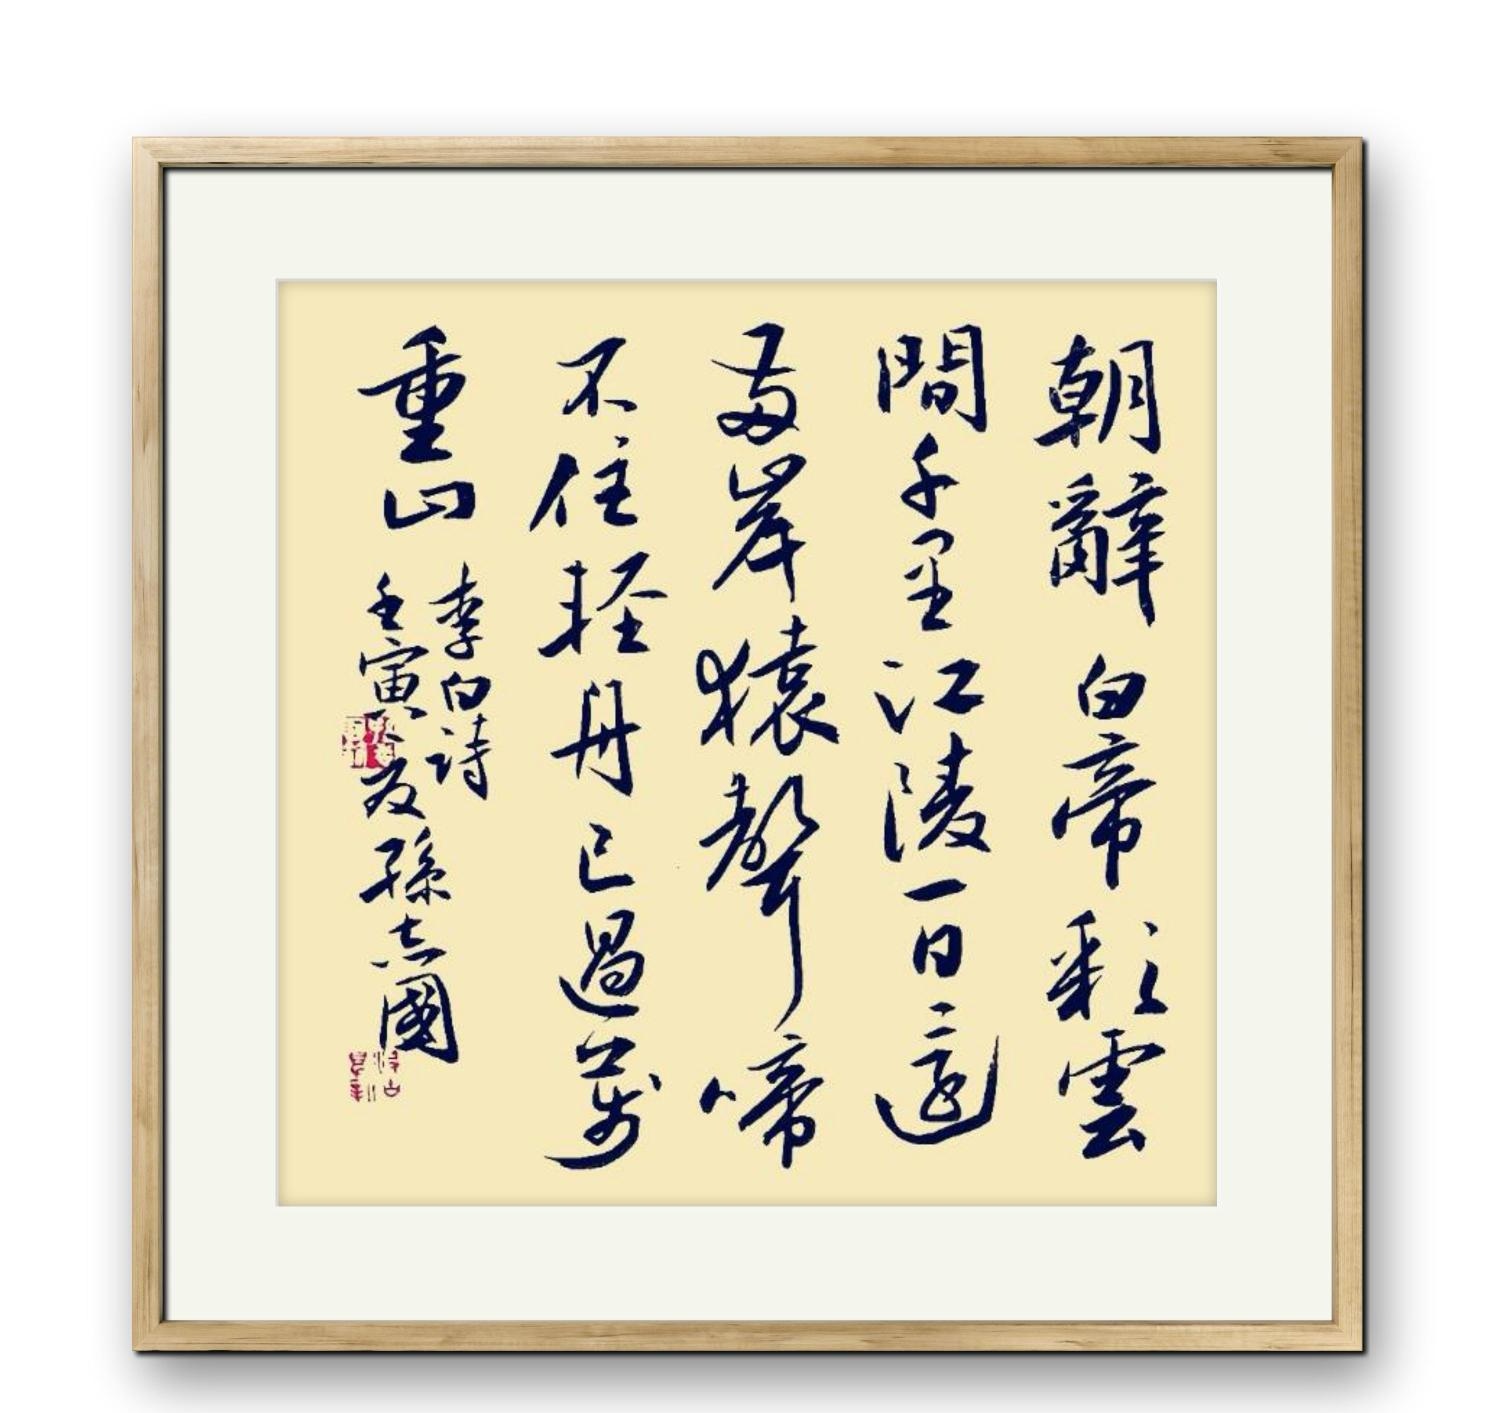 朝辭白帝彩雲
間千里江陵一日還
兩岸猿聲啼
不住輕舟已過萬
重山
李白詩
壬寅夏孫志國